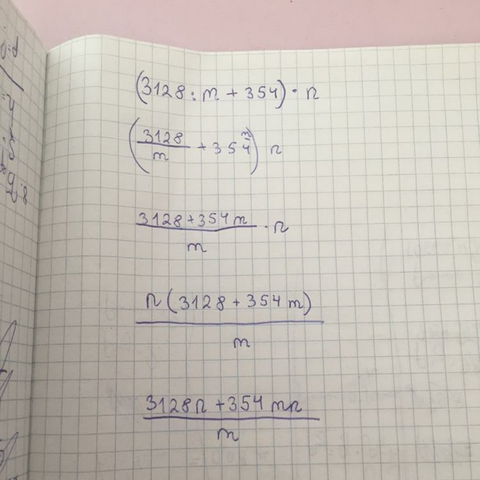 (3128 : m + 354) · n
(3128/m + 354^m) n
3128 + 354m/m · n
n(3128 + 354m)/m
3128n + 354mn/m